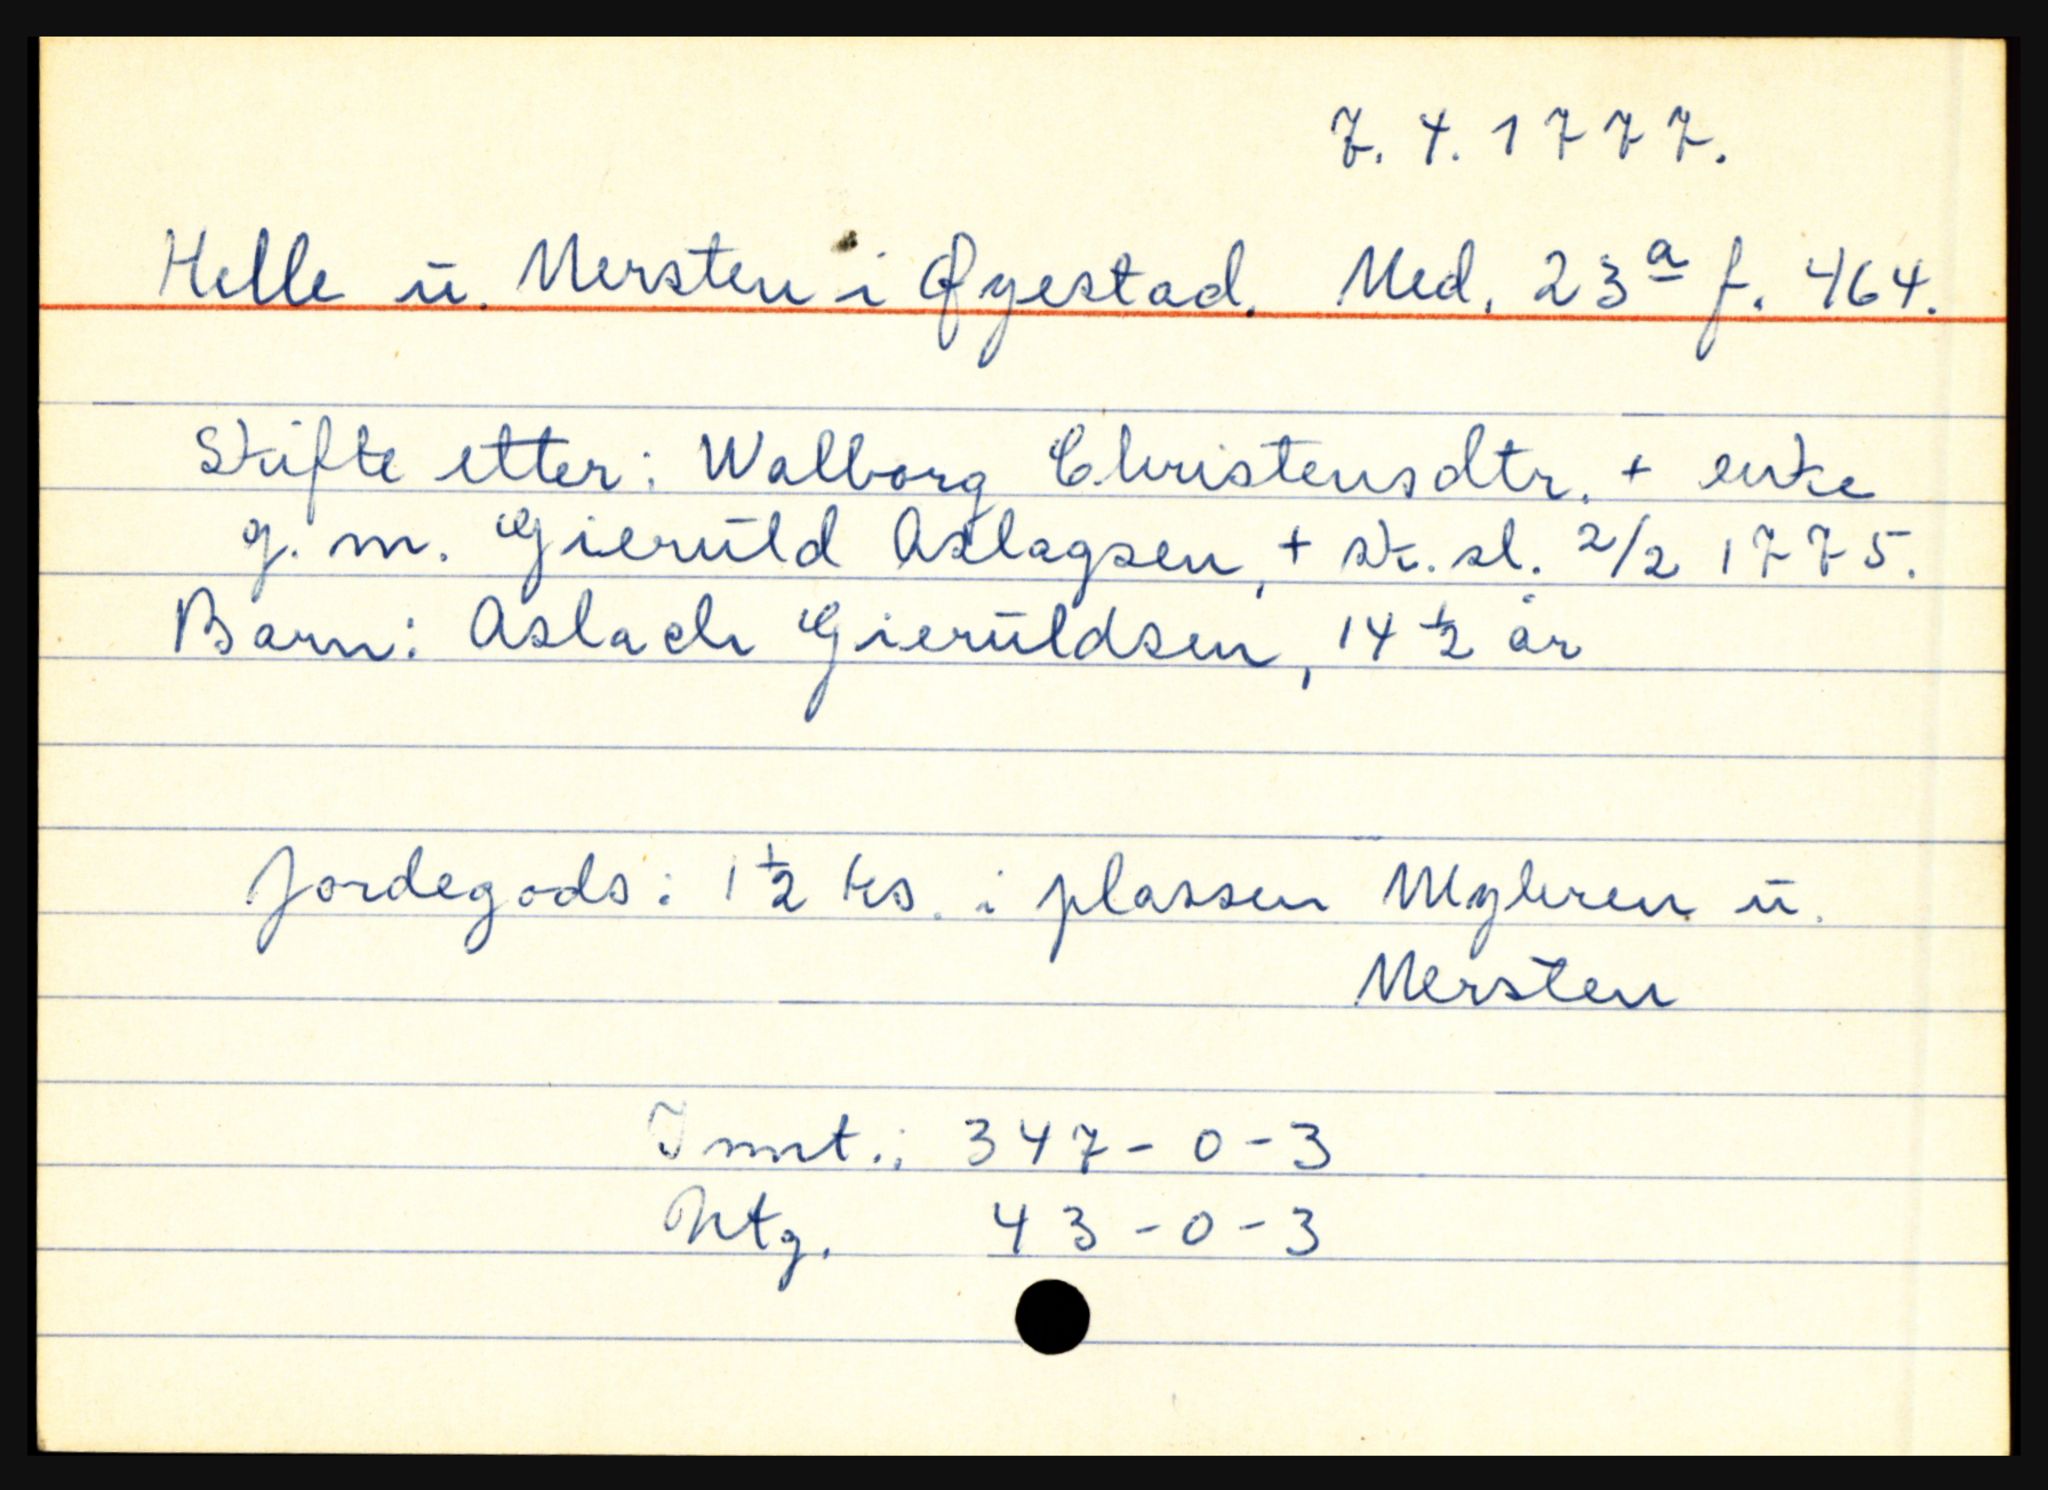 7.4.1777.
Helle u. Nersten i Øyestad. Ned. 23a f. 464.
Skifte etter: Walborg Christensdtr. + enke
g. m. Gieruld Aslagsen, + sk. sl. 2/2 1775.
Barn: Aslach Gieruldsen, 14 1/2 år
Jordegods: 1 1/2 ks. i plassen Myhren u.
Nersten
Innt.: 347-0-3
Utg. 43-0-3